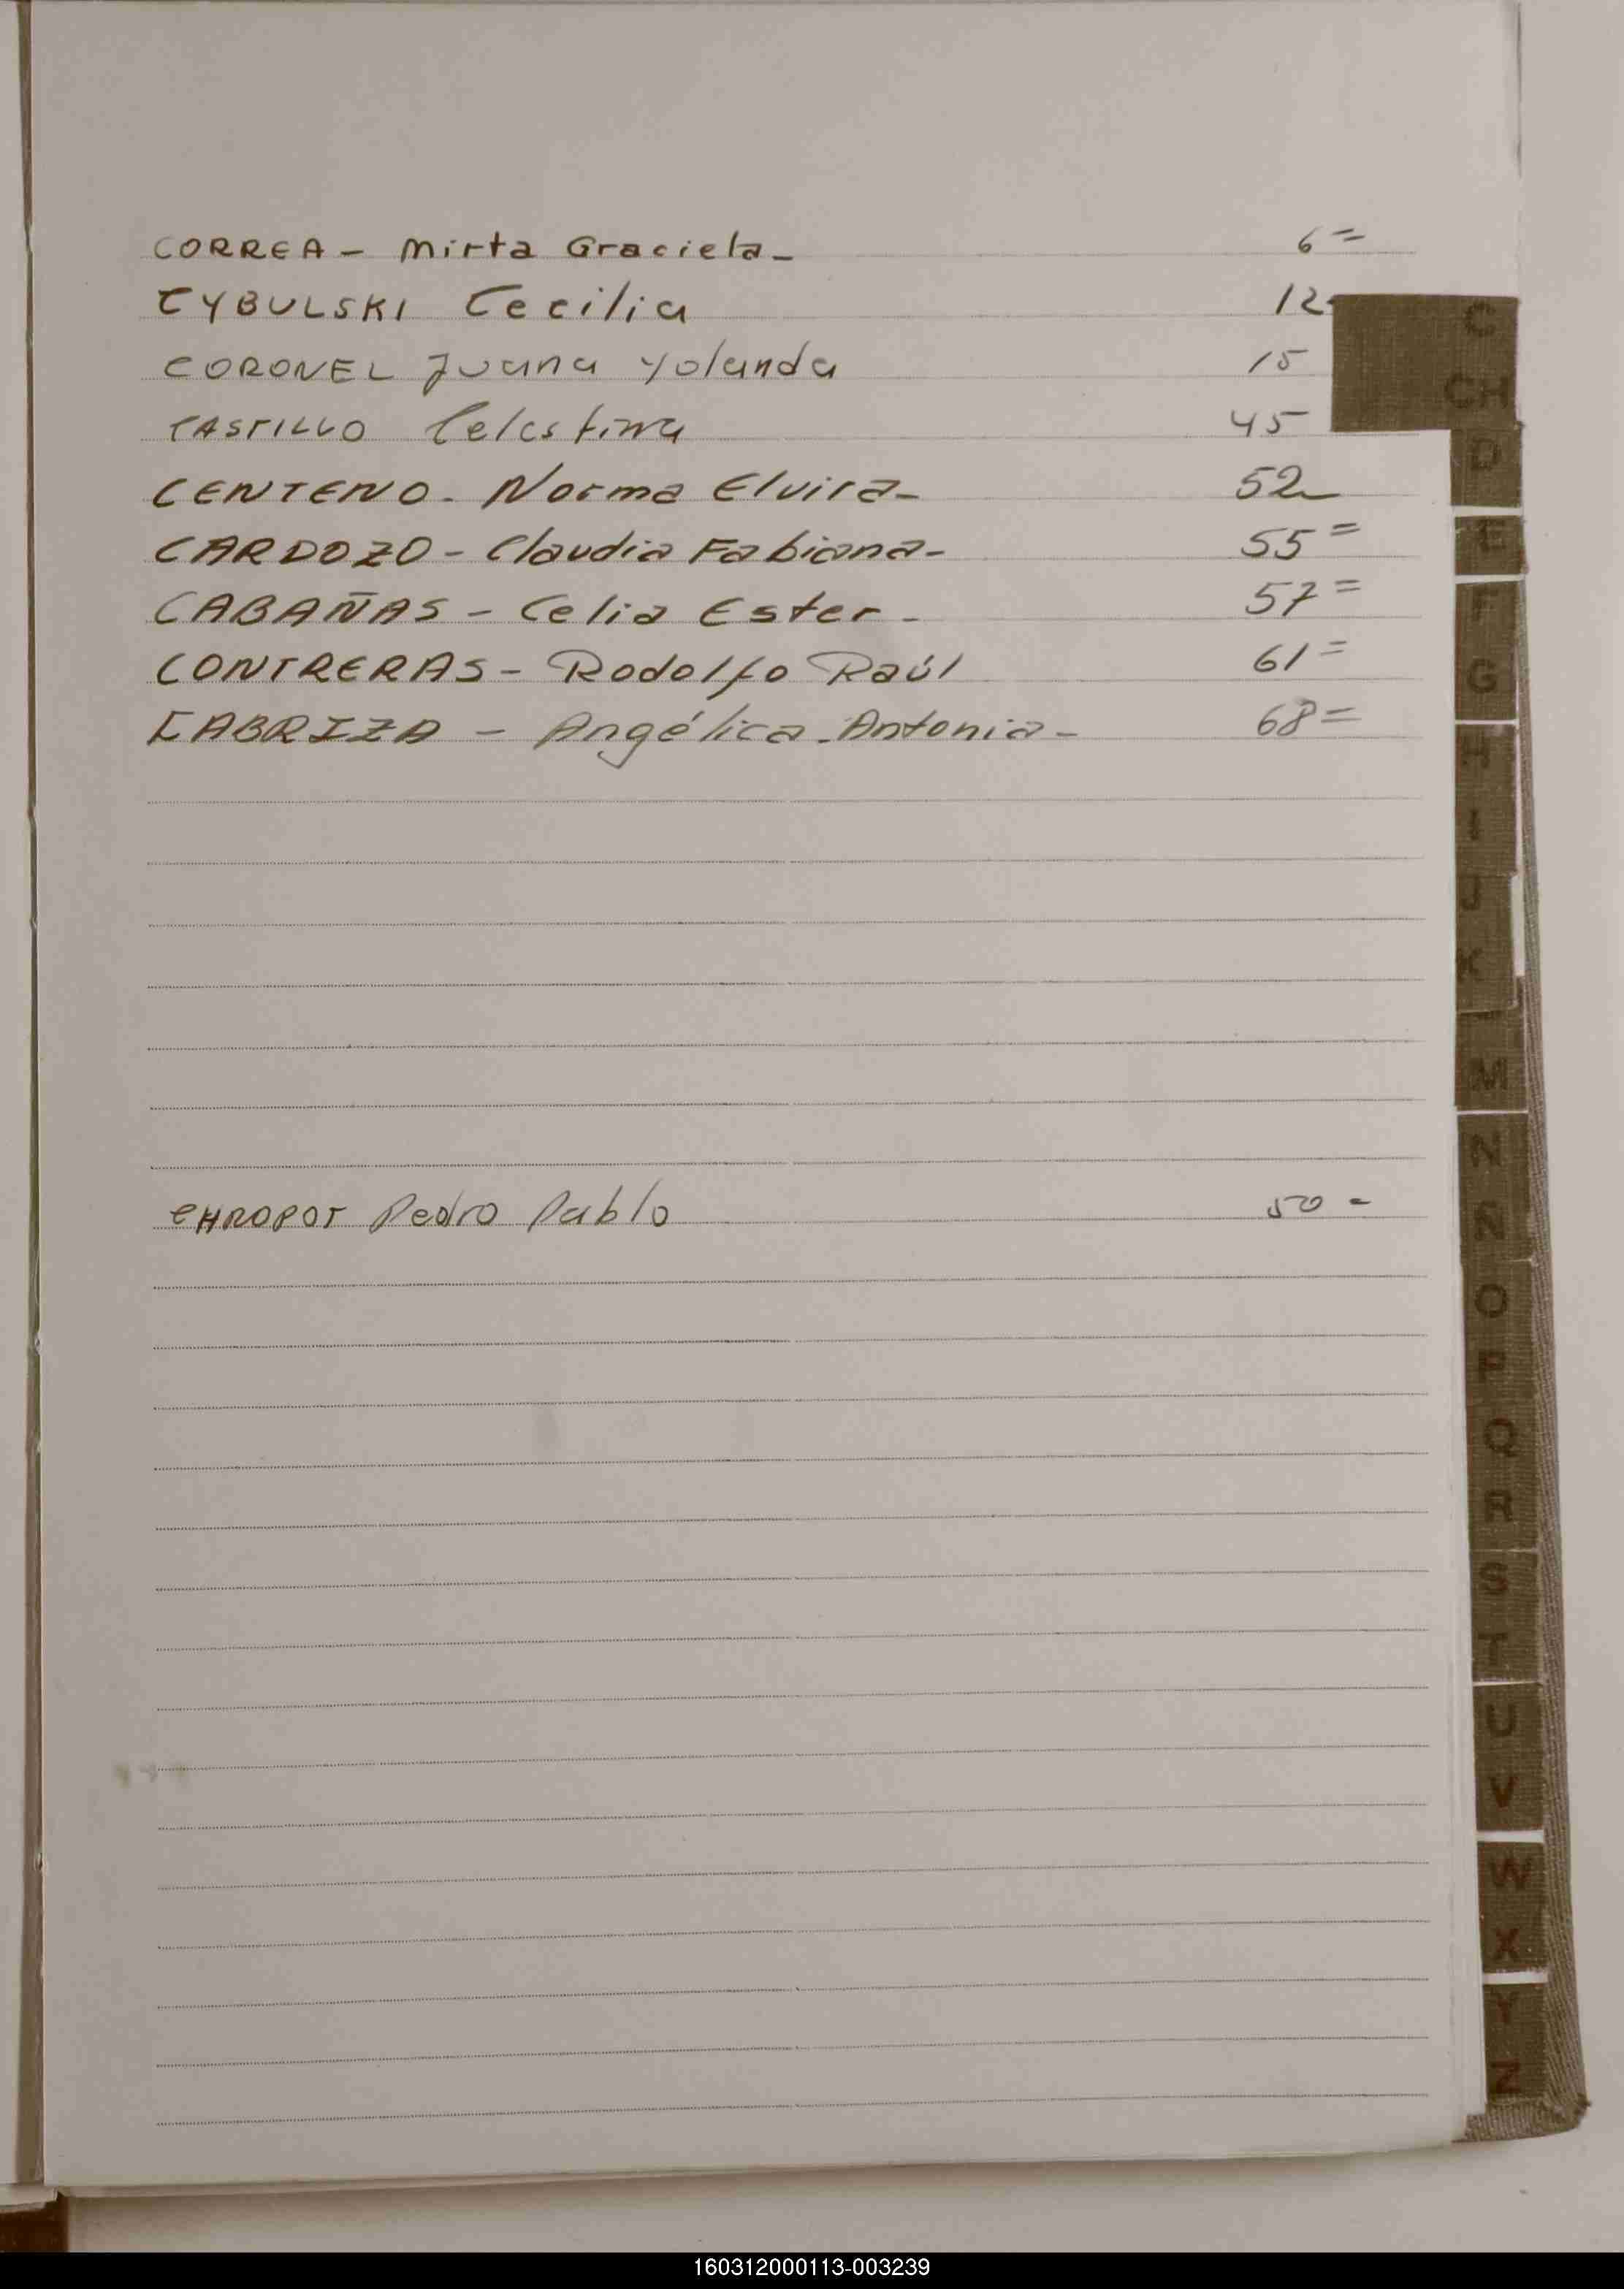 CORREA - Mirta Graciela - 6=
CYBULSKI Cecilia 12-
CORONEL Juana Yolanda 15
CASTILLO Celestina 45
CENTENO - Norma Elvira - 52-
CARDOZO - Claudia Fabiana - 55=
CABAÑAS - Celia Ester - 57=
CONTRERAS - Rodolfo Raúl 61=
CABRIZA - Angélica Antonia - 68=
Pedro Pablo 50-
C
CH
D
E
F
G
H
I
J
K
M
N
Ñ
O
P
Q
R
S
T
U
V
W
X
Y
Z
160312000113-003239